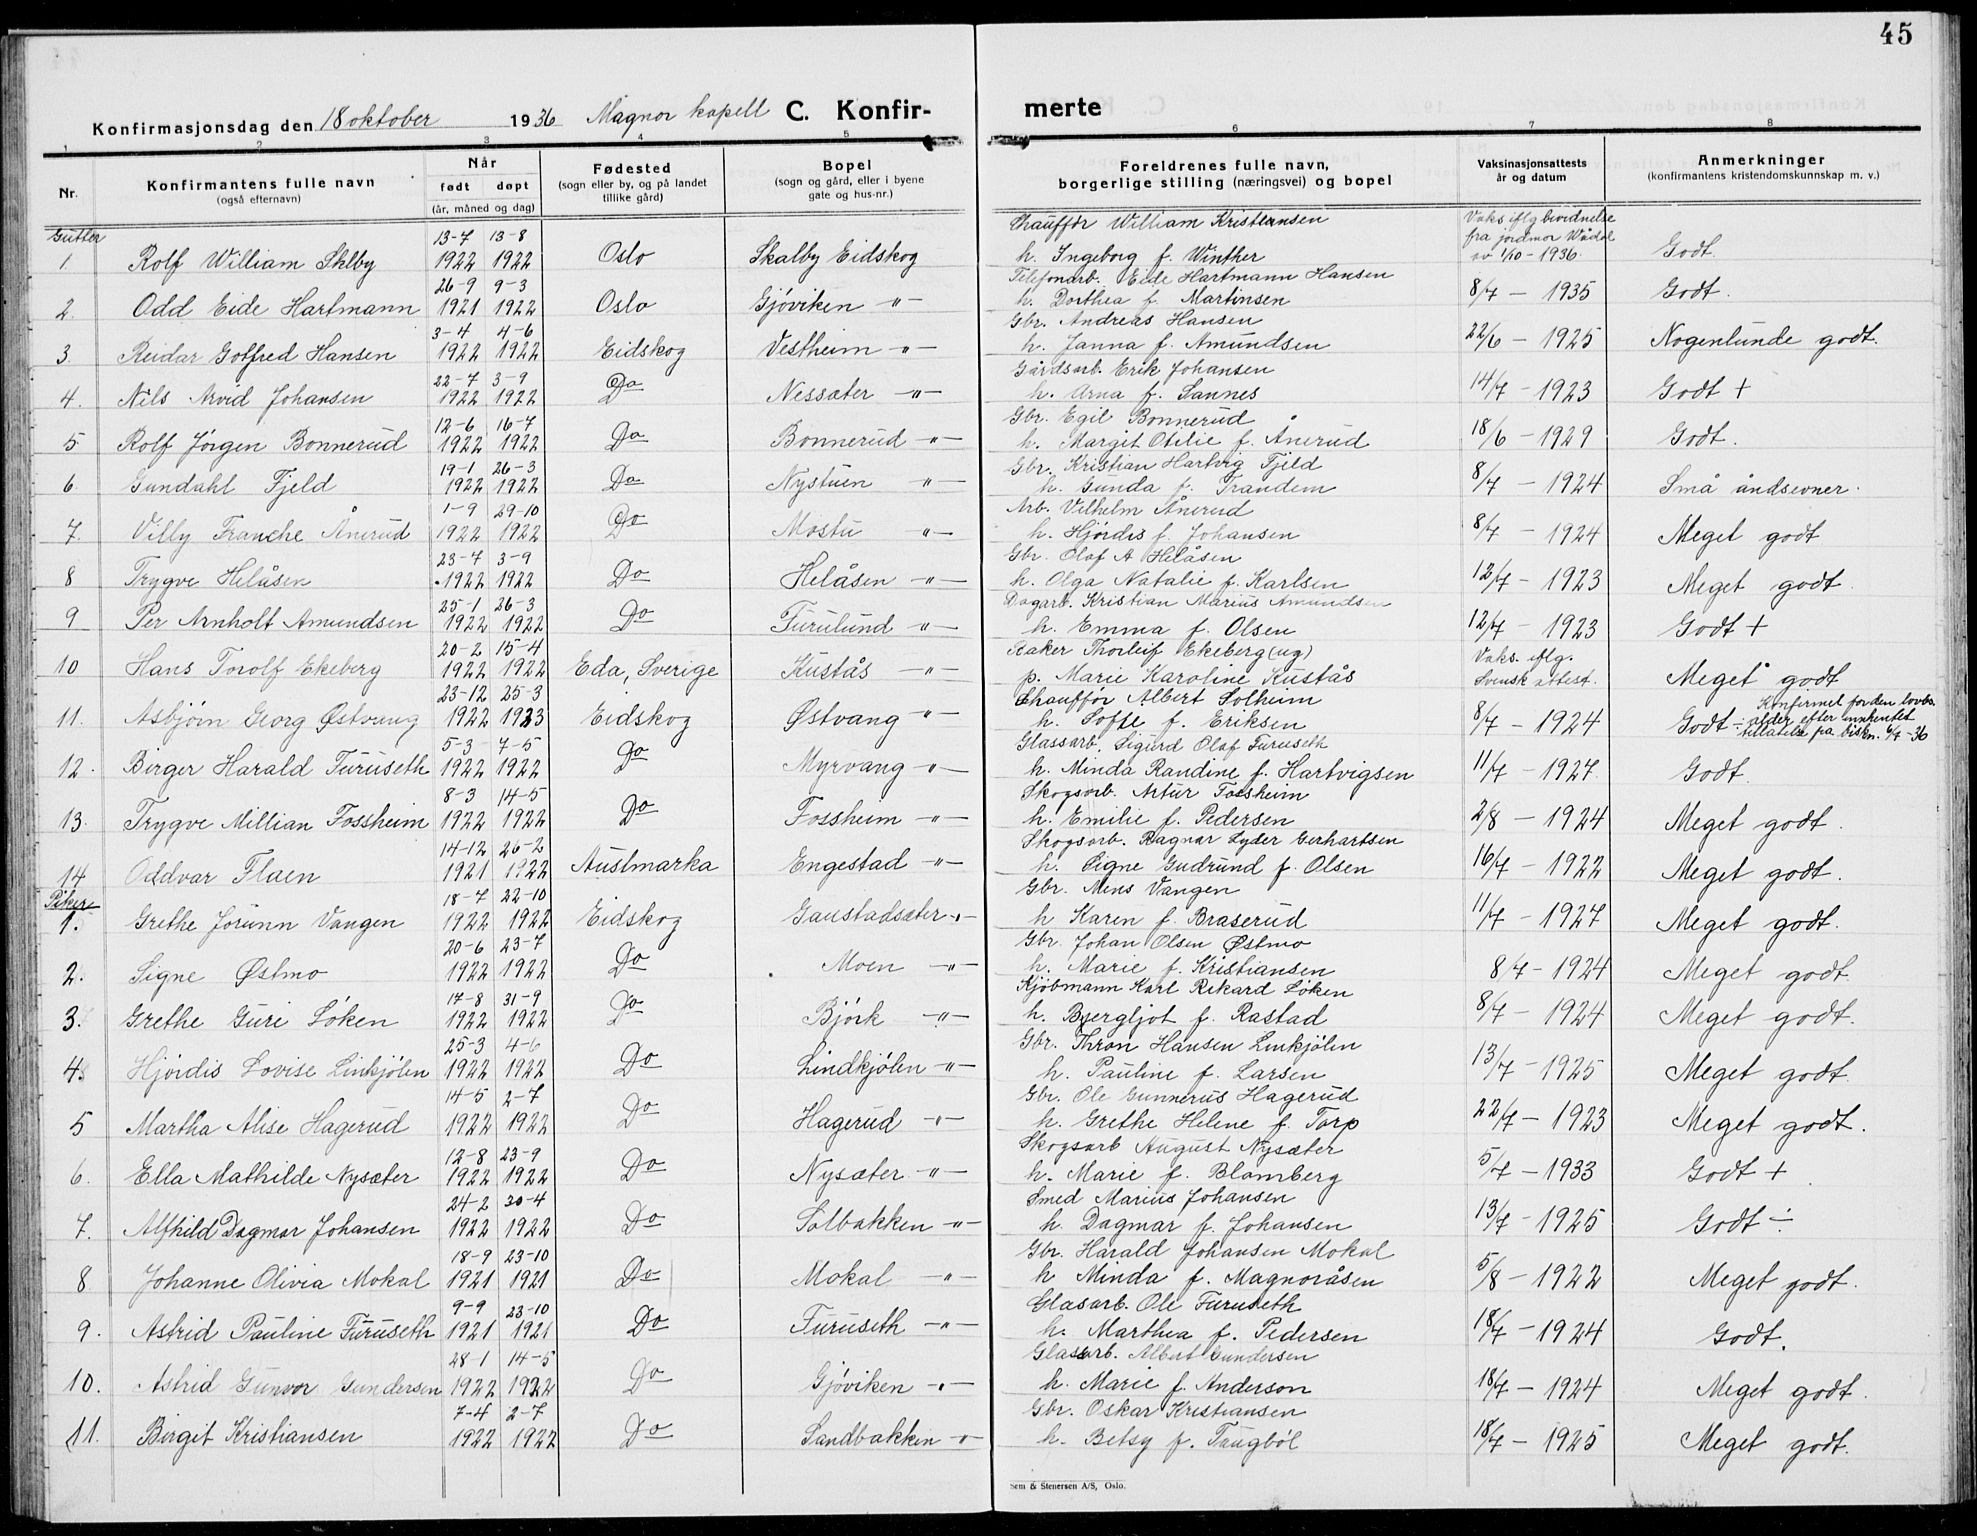 45
Konfirmasjonsdag den 18 oktober 1936 Magnor kapell C. Konfirmerte
1 2 3 4 5 6 7 8
Nr. Konfirmantens fulle navn (også efternavn) Når født døpt (år, måned og dag) Fødested (sogn eller by, og på landet tillike gård) Bopel (sogn og gård, eller i byene gate og hus-nr.) Foreldrenes fulle navn, borgerlige stilling (næringsvei) og bopel Vaksinasjonsattests år og datum Anmerkninger (konfirmantens kristendomskunnskap m. v.)
Gutter
1. Rolf William Sklby 13-7 1922 13-8 1922 Oslo Skalby Eidskog Chauffør William Kristiansen h. Ingeborg f. Winther Vaks iflg bevidnelse fra jordmor Wådal av 1/10-1936. Godt.
2. Odd Eide Hartmann 26-9 1921 9-3 1922 Oslo Gjøviken -"- Telefonarb. Eide Hartmann Hansen h. Dorthea f. Martinsen 8/7 - 1935 Godt.
3. Reidar Gotfred Hansen 3-4 1922 4-6 1922 Eidskog Vestheim -"- Gbr. Andreas Hansen h. Janna f. Amundsen 22/6 - 1925 Nogenlunde godt.
4. Nils Arvid Johansen 22-7 1922 3-9 1922 Do Nessæter -"- Gårdsarb. Erik Johansen h. Arna f. Sannes 14/7 - 1923 Godt +
5 Rolf Jørgen Bonnerud 12-6 1922 16-7 1922 Do Bonnerud -"- Gbr. Egil Bonnerud h. Margit Otilie f. Ånerud 18/6 - 1929 Godt.
6. Gundahl Fjeld 19-1 1922 26-3 1922 Do Nystuen -"- Gbr. Kristian Hartvig Fjeld h. Gunda f. Trandem 8/7 - 1924 Små åndsevner.
7. Villy Franche Ånerud 1-9 1922 29-10 1922 Do Mostu -"- Arb. Vilhelm Ånerud h. Hjørdis f. Johansen 8/7 - 1924 Meget godt
8 Trygve Helåsen 23-7 1922 3-9 1922 Do Helåsen -"- Gbr. Olaf A Helåsen h. Olga Natalie f. Karlsen 12/7 - 1923 Meget godt.
9 Per Arnholt Amundsen 25-1 1922 26-3 1922 Do Furulund -"- Dagarb. Kristian Marius Amundsen h. Emma f. Olsen 12/7 - 1923 Godt +
10 Hans Torolf Ekeberg 20-2 1922 15-4 1922 Eda, Sverige Kustås -"- Raker Thorleif Ekeberg (ug) p. Marie Karoline Kustås Vaks. iflg. Svensk attest. Meget godt
11. Asbjørn Georg Østvang 23-12 1922 25-3 1923 Eidskog Østvang -"- Chauffør Albert Solheim h. Sofie f. Eriksen 8/7 - 1924 Godt - Konfirmet før den lovbs. alder efter innhentet tillatelse fra biskn. 6/7-36
12. Birger Harald Furuseth 5-3 1922 7-5 1922 Do Myrvang -"- Glassarb. Sigurd Olaf Furuseth h. Minda Randine f. Hartvigsen 11/7 - 1927. Godt.
13. Trygve Millian Fossheim 8-3 1922 14-5 1922 Do Fossheim -"- Skogsarb. Artur Fossheim h. Emilie f. Pedersen 2/8 - 1924 Meget godt.
14 Oddvar Flaen 14-12 1921 26-2 1922 Austmarka Engestad -"- Skogsarb. Ragnar Lyder Gerhartsen h. Signe Gudrund f. Olsen 16/7 - 1922 Meget godt.
Piker
1. Grethe Jorunn Vangen 18-7 1922 22-10 1922 Eidskog Gaustadsæter -"- Gbr. Mens Vangen h Karen f. Braserud 11/7 - 1927 Meget godt.
2. Signe Østmo 20-6 1922 23-7 1922 Do Moen -"- Gbr. Johan Olsen Østmo h. Marie f. Kristiansen 8/7 - 1924 Meget godt
3. Grethe Guri Løken 17-8 1922 31-9 1922 Do Bjørk -"- Kjøbmann Karl Rikard Løken h. Byergljot f. Rastad 8/7 - 1924 Meget godt.
4. Hjørdis Lovise Linkjølen 25-3 1922 4-6 1922 Do Lindkjølen -"- Gbr. Thron Hansen Linkjølen h. Pauline f. Larsen 13/7 - 1925 Meget godt
5 Martha Alise Hagerud 14-5 1922 2-7 1922 Do Hagerud -"- Gbr. Ole Gunnerus Hagerud h. Grethe Helene f. Torp 22/7 - 1923 Meget godt.
6. Ella Mathilde Nysæter 12-8 1922 23-9 1922 Do Nysæter -"- Skogsarb August Nysæter h. Marie f. Blomberg 5/7 - 1933 Godt +
7. Alfhild Dagmar Johansen 24-2 1922 30-4 1922 Do Solbakken -"- Smed Marius Johansen h. Dagmar f. Johansen 13/7 - 1925 Godt ÷
8 Johanne Olivia Mokal 18-9 1921 23-10 1921 Do Mokal -"- Gbr. Harald Johansen Mokal h Minda f. Magnoråsen 5/8 - 1922 Meget godt.
9. Astrid Pauline Furuseth 9-9 1921 23-10 1921 Do Furuseth -"- Glasarb. Ole Furuseth h. Marthea f. Pedersen 18/7 - 1924 Godt.
10. Astrid Gunvor Gundersen 28-1 1922 14-5 1922 Do Gjøviken -"- Glassarb. Albert Gundersen h. Marie f. Anderson 18/7 - 1924 Meget godt.
11. Birgit Kristiansen 7-4 1922 2-7 1922 Do Sandbakken -"- Gbr. Oskar Kristiansen h. Betsy f. Taugbøl 18/7 - 1925 Meget godt.
Sem & Stenersen A/S, Oslo.